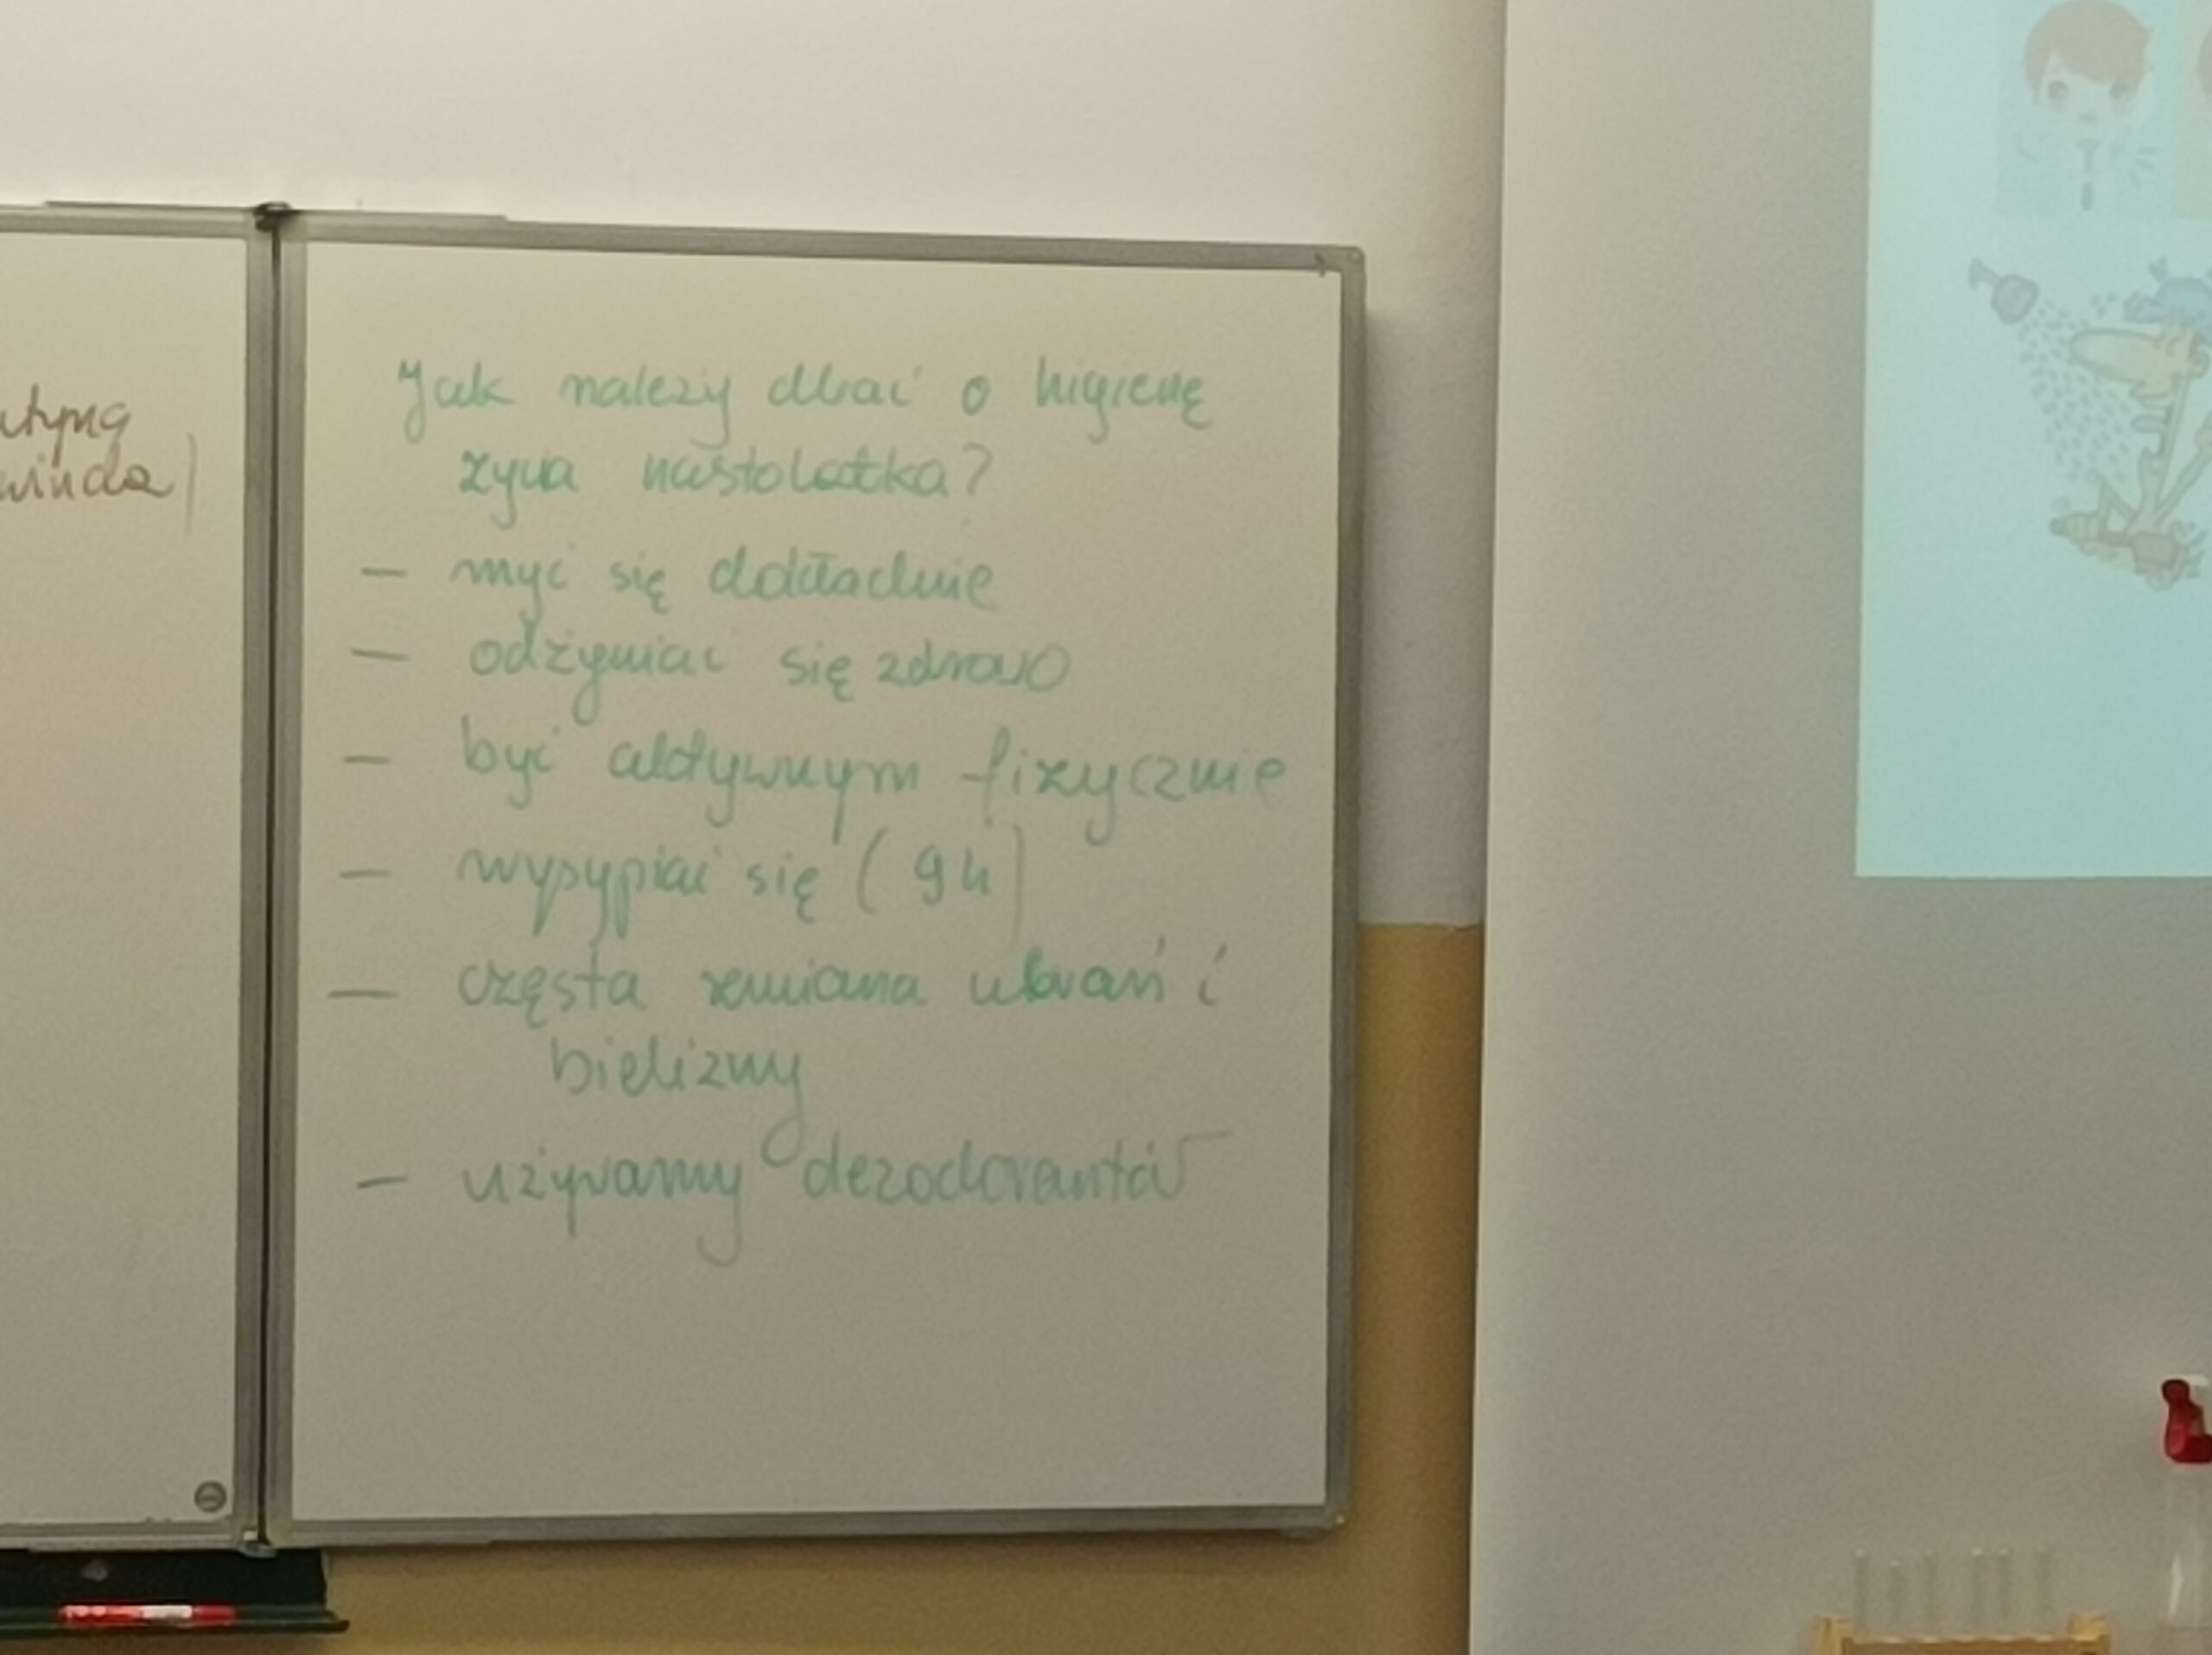 Jak należy dbać o higienę
życia nastolatka?
— myć się dokładnie
— odżywiać się zdrowo
— być aktywnym fizycznie
— wysypiać się (9h)
— częsta zmiana ubrań i
bielizny
— używamy dezodorantów